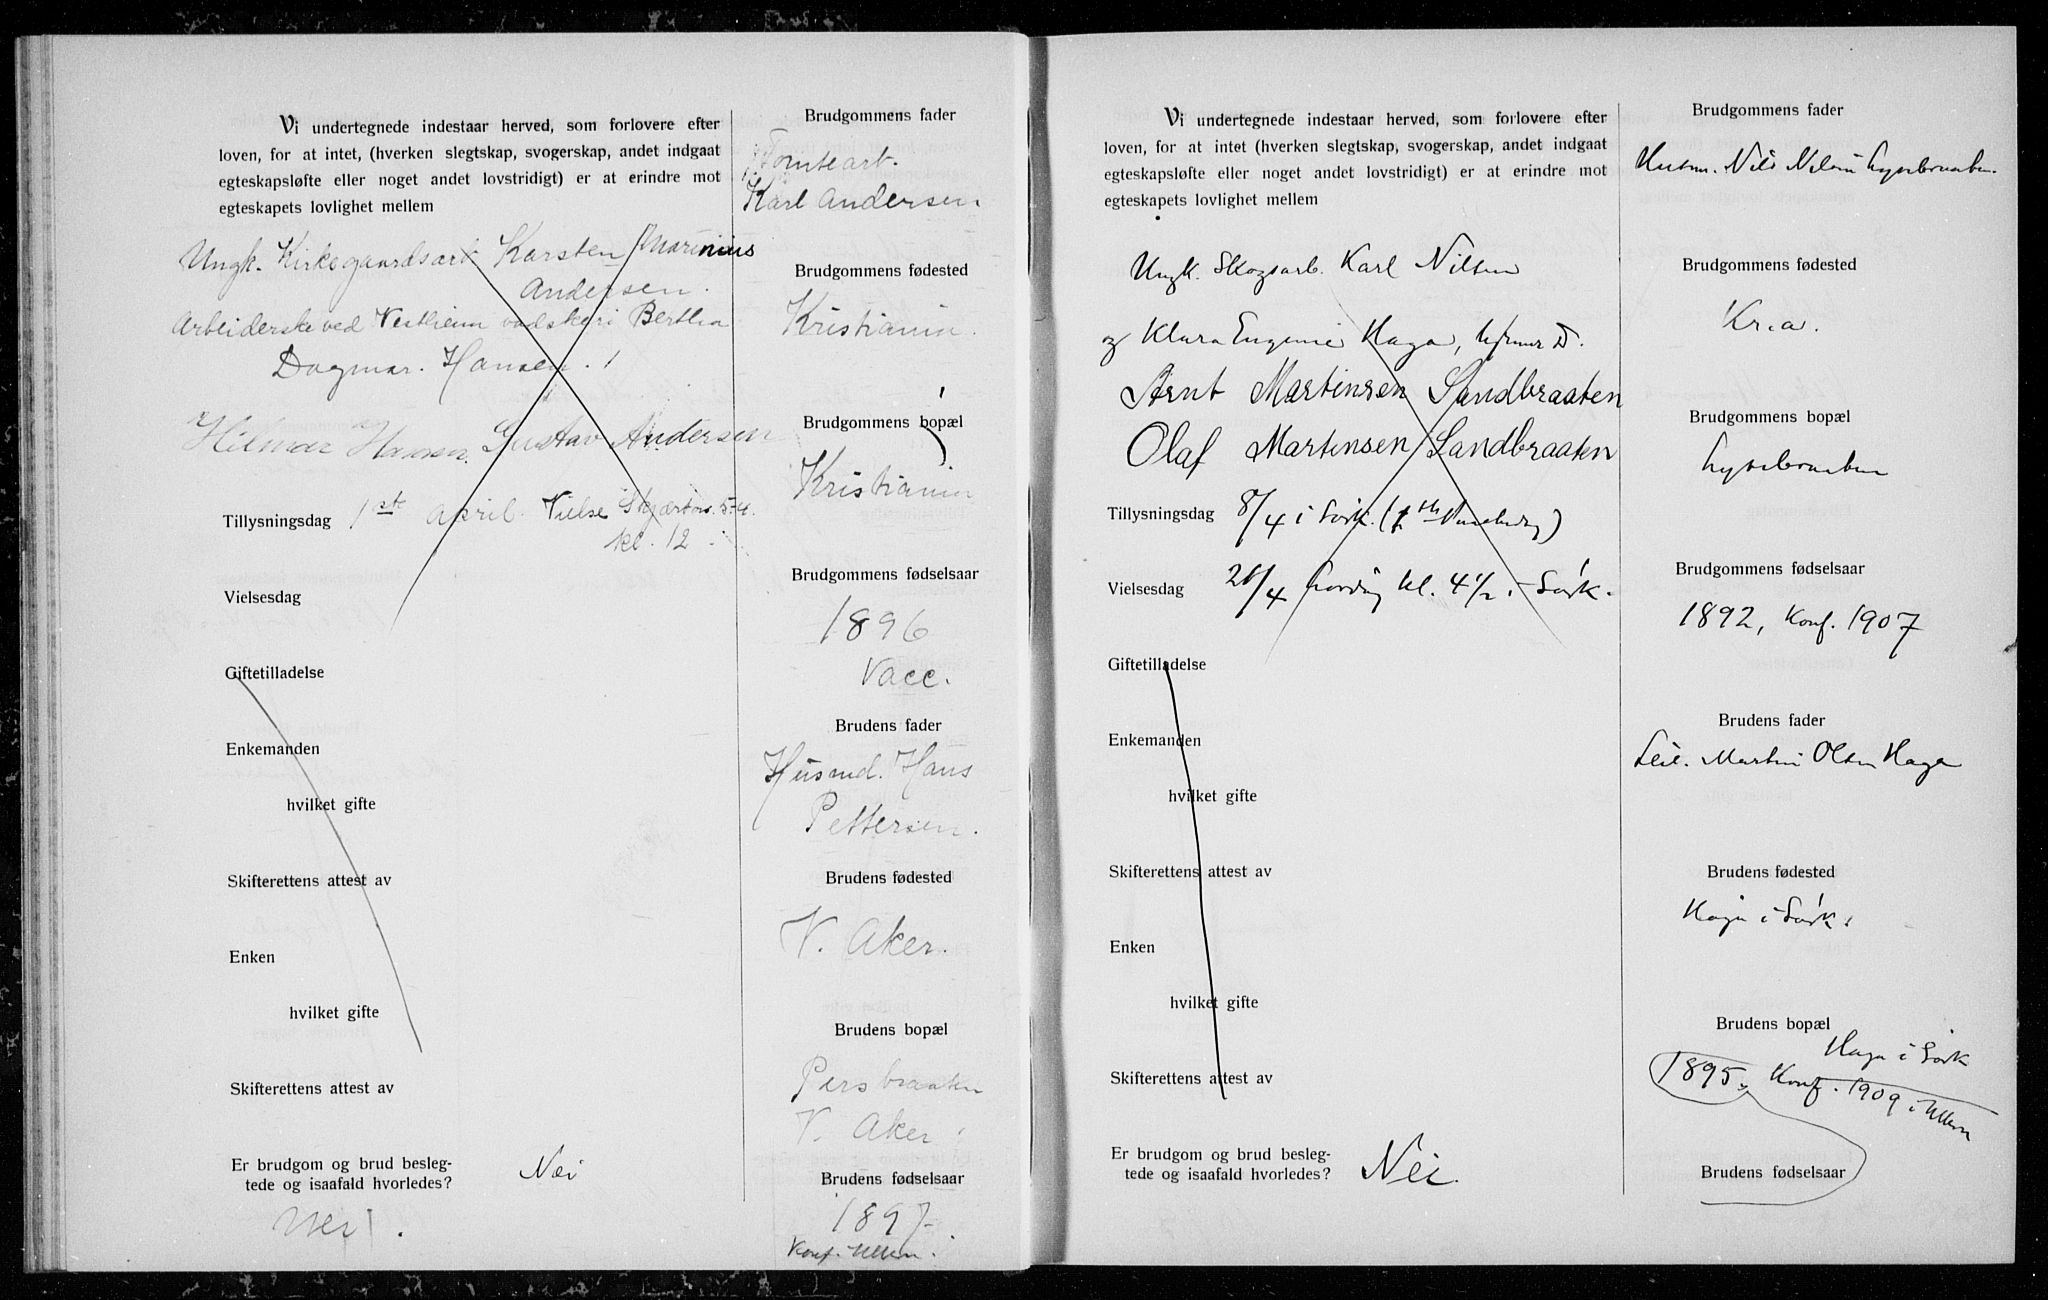 Vi undertegnede indestaar herved, som forlovere efter
loven, for at intet, (hverken slegtskap, svogerskap, andet indgaat
egteskapsløfte eller noget andet lovstridigt) er at erindre mot
egteskapets lovlighet mellem
Ungk. Kirkegaardsarb. Karsten Marinius
Andersen.
Arbeiderske ved Vestheim vadskeri Bertha
Dagmar. Hansen.
Hilmar Hansen. Gustav Andersen
Tillysningsdag 1ste april. Vielse Skjærtors. 5-4.
kl. 12.
Vielsesdag
Giftetilladelse
Enkemanden
hvilket gifte
Skifterettens attest av
Enken
hvilket gifte
Skifterettens attest av
Er brudgom og brud besleg-
tede og isaafald hvorledes? Nei
Nei.
Brudgommens fader
Tomtearb.
Karl Andersen
Brudgommens fødested
Kristiania.
Brudgommens bopæl
Kristiania
Brudgommens fødselsaar
1896
Vacc.
Brudens fader
Husmd. Hans
Pettersen.
Brudens fødested
V. Aker.
Brudens bopæl
Persbraaten
V. Aker.
Brudens fødselsaar
1897
Konf. Ullern.
Vi undertegnede indestaar herved, som forlovere efter
loven, for at intet, (hverken slegtskap, svogerskap, andet indgaat
egteskapsløfte eller noget andet lovstridigt) er at erindre mot
egteskapets lovlighet mellem
Ungk. Skogsarb. Karl Nilsen
og Klara Eugenie Haga, hjemmev. D.
Arnt Martinsen Sandbraaten
Olaf Martinsen Sandbraaten
Tillysningsdag 8/4 i Sørk.
Vielsesdag kl. 4 1/2 i Sørk.
Giftetilladelse
Enkemanden
hvilket gifte
Skifterettens attest av
Enken
hvilket gifte
Skifterettens attest av
Er brudgom og brud besleg-
tede og isaafald hvorledes? Nei.
Brudgommens fader
Husm. Nils Nilsen Lysebraaten.
Brudgommens fødested
Kr.a.
Brudgommens bopæl
Lysebraaten
Brudgommens fødselsaar
1892, Konf. 1907
Brudens fader
Leil. Martin Olsen Haga
Brudens fødested
Haga i Sørk.
Brudens bopæl
Haga i Sørk
1895. Konf. 1909 i Ullern
Brudens fødselsaar